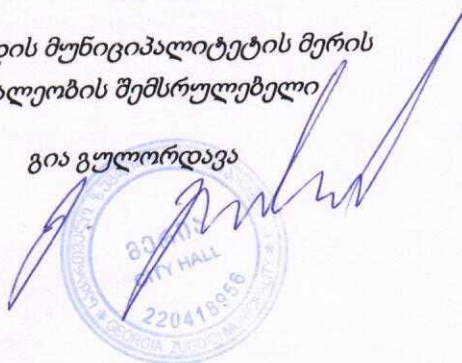 დის მუნიციპალიტეტის მერის
ალეობის შემსრულებელი
გია გულორდავა
მერია
CITY HALL
220418956
GEORGIA ZUGDIDI MUNICIPALITY